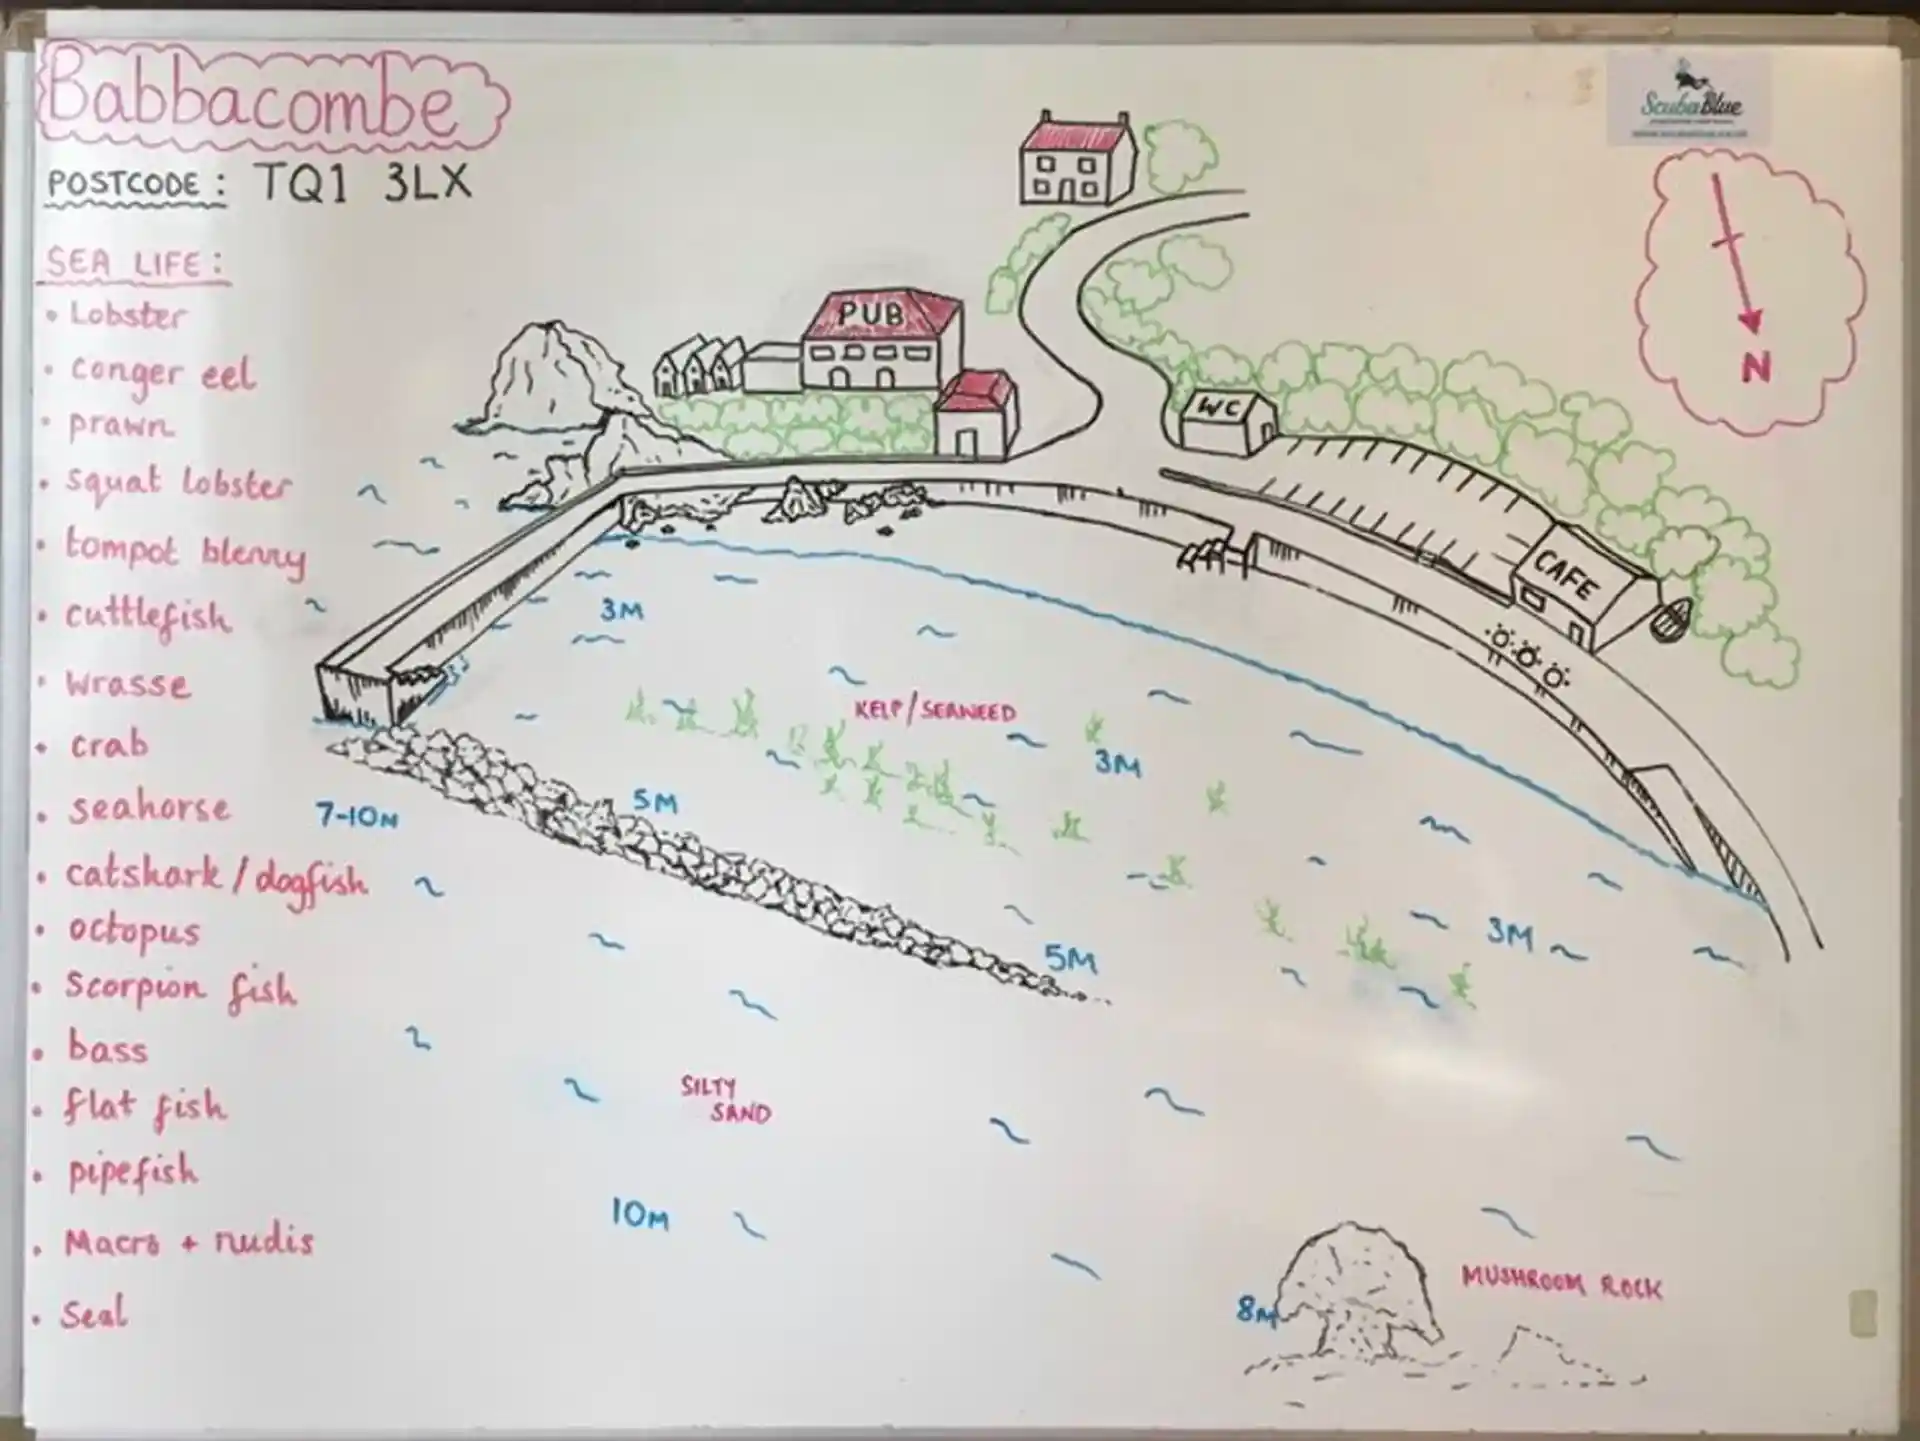 Babbacombe
POSTCODE: TQ1 3LX
SEA LIFE:
• Lobster
• conger eel
• prawn
• squat lobster
• tompot blenny
• cuttlefish
• wrasse
• crab
• seahorse
• catshark / dogfish
• octopus
• Scorpion fish
• bass
• flat fish
• pipefish
• Macro + nudis
• Seal
ScubaBlue
N
PUB
WC
CAFE
3M
KELP/SEAWEED
3M
5M
7-10M
3M
5M
SILTY
SAND
10M
MUSHROOM ROCK
8M